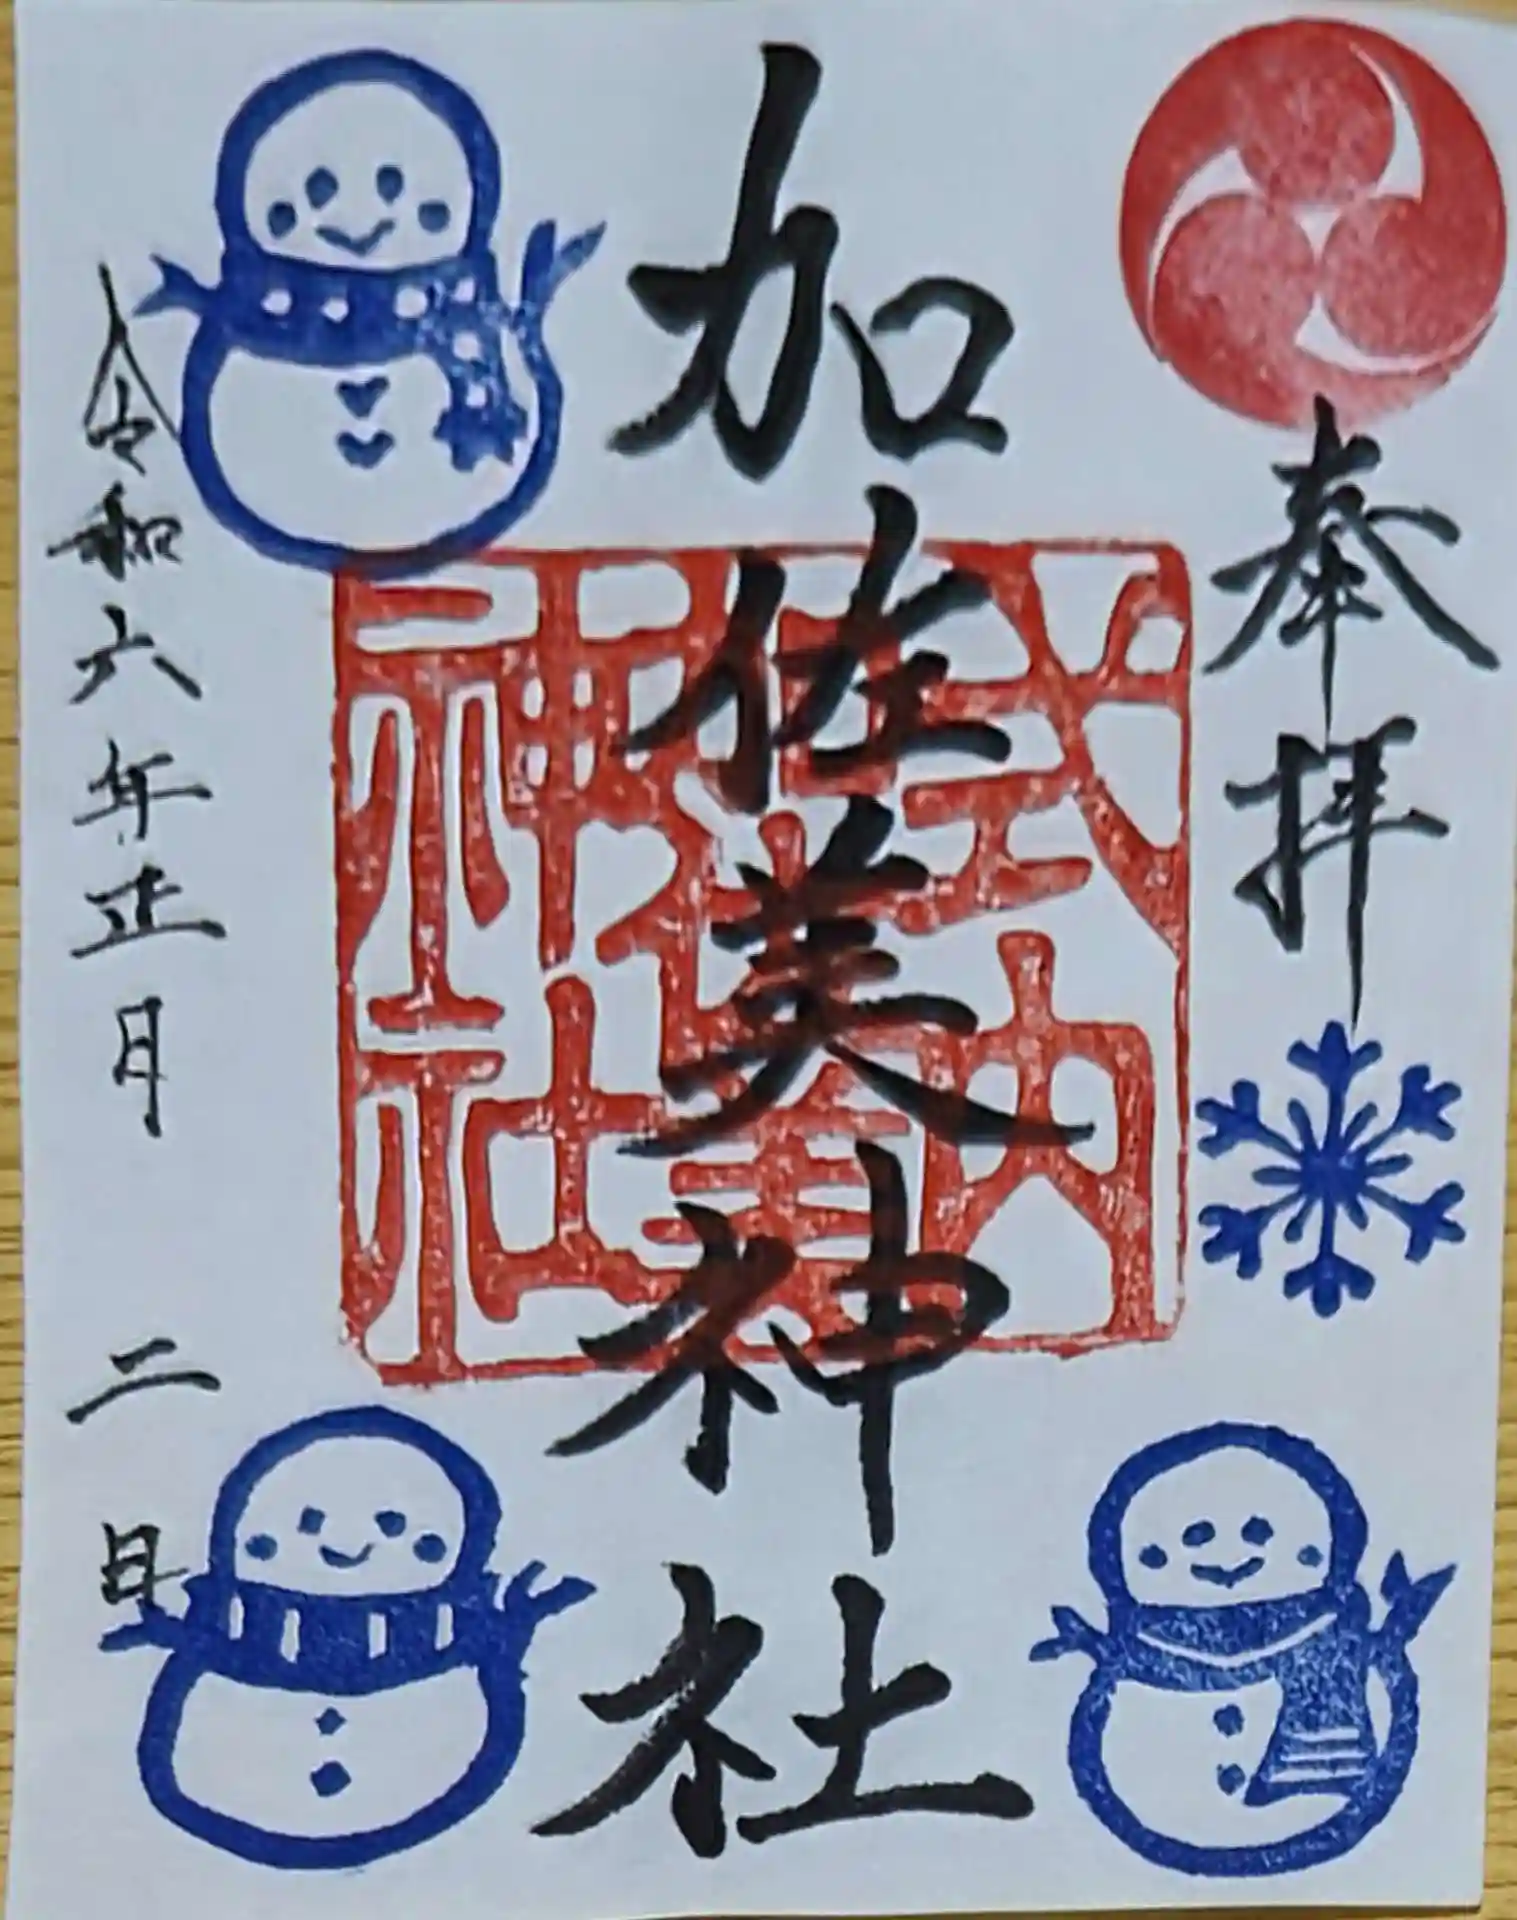 奉拝
加佐美神社
式内
加佐美
神社
令和六年正月二日